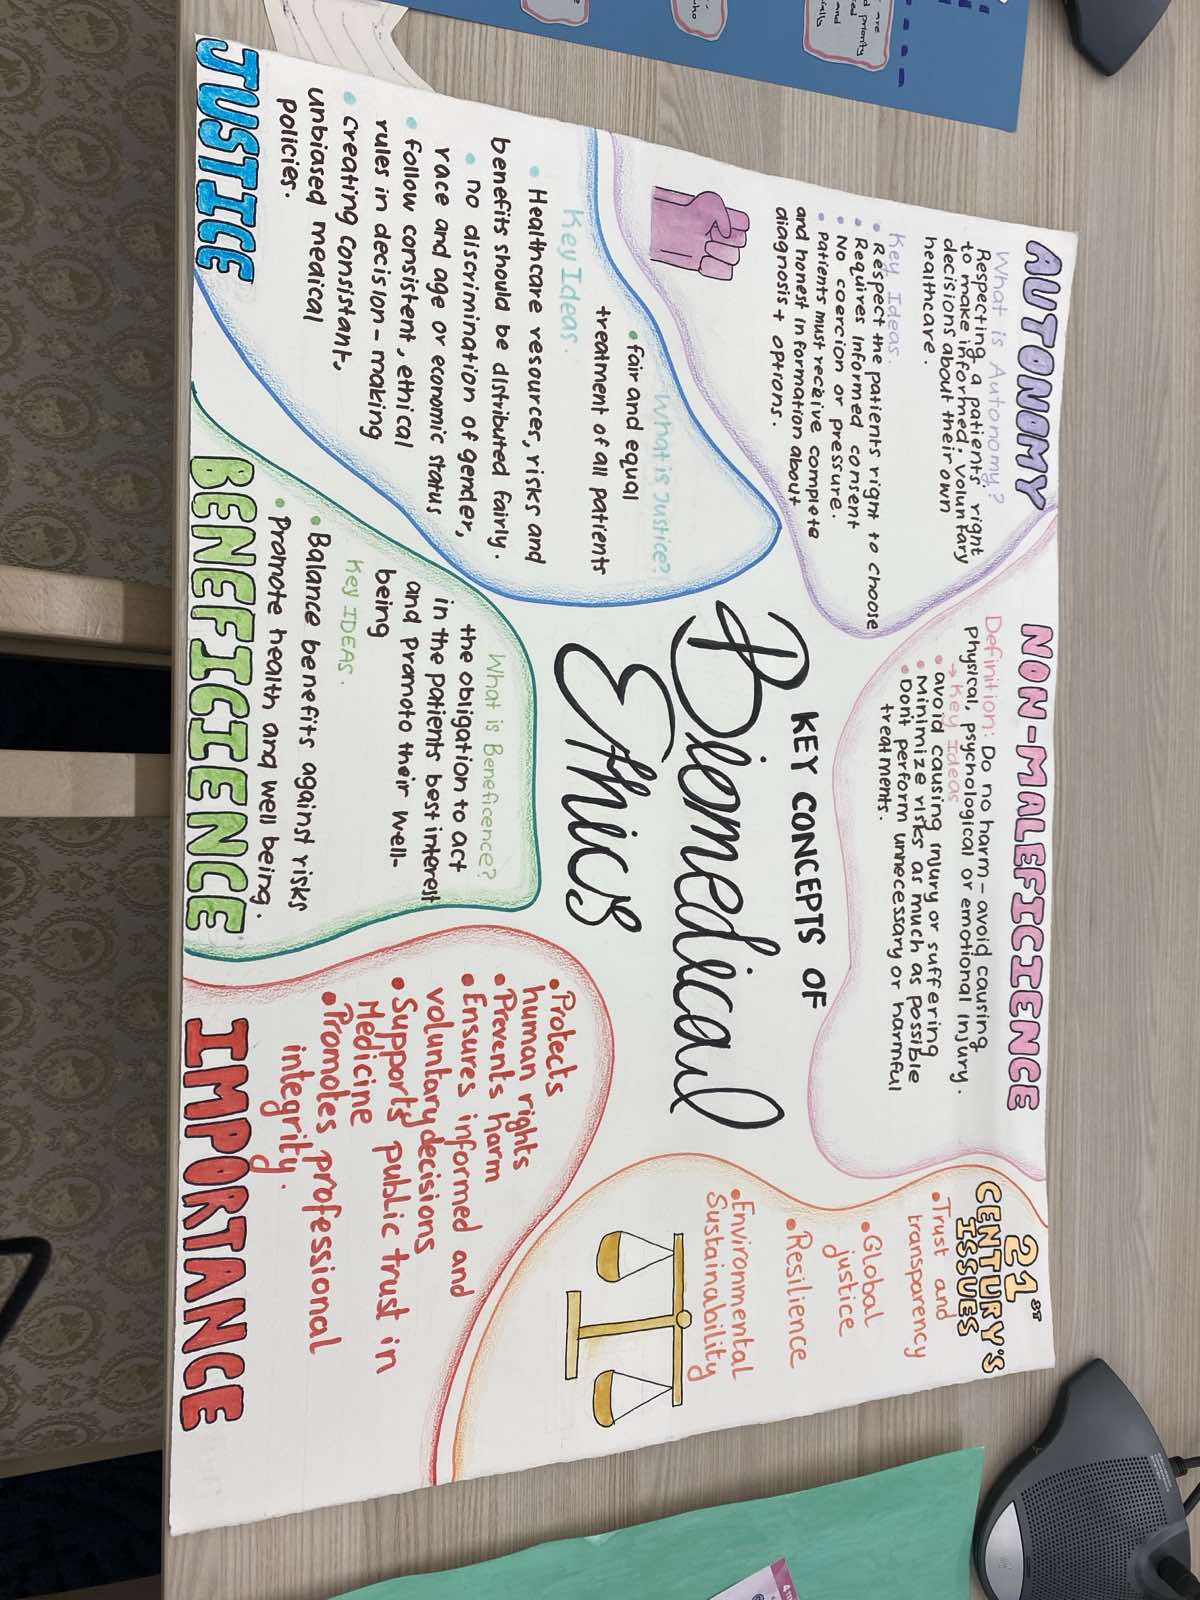 AUTONOMY
What is Autonomy?
Respecting a patient's right
to make informed, voluntary
decisions about their own
healthcare.
Key Ideas.
• Respect the patients right to choose
• Requires informed consent
• No coercion or pressure.
• patients must receive complete
and honest information about
diagnosis + options.
NON-MALEFICIENCE
Definition: Do no harm - avoid causing
Physical, psychological or emotional injury.
→ Key Ideas
• avoid causing injury or suffering
• Minimize risks as much as possible
• Don't perform unnecessary or harmful
treatments.
21ST
CENTURY'S
ISSUES
• Trust and
transparency
• Global
justice
• Resilience
• Environmental
Sustainability
KEY CONCEPTS OF
Biomedical
Ethics
What is Justice?
• fair and equal
treatment of all patients
Key Ideas.
• Healthcare resources, risks and
benefits should be distributed fairly.
• no discrimination of gender,
race and age or economic status
• follow consistent, ethical
rules in decision-making
• creating consistant,
unbiased medical
policies.
JUSTICE
What is Beneficence?
the obligation to act
in the patients best interest
and promoto their well-
being
Key IDEAS.
• Balance benefits against risks
• Promote health and well being.
BENEFICIENCE
• Protects
human rights
• Prevents harm
• Ensures informed and
voluntary decisions
• Supports public trust in
Medicine
• Promotes professional
integrity.
IMPORTANCE
are
priority
and
who